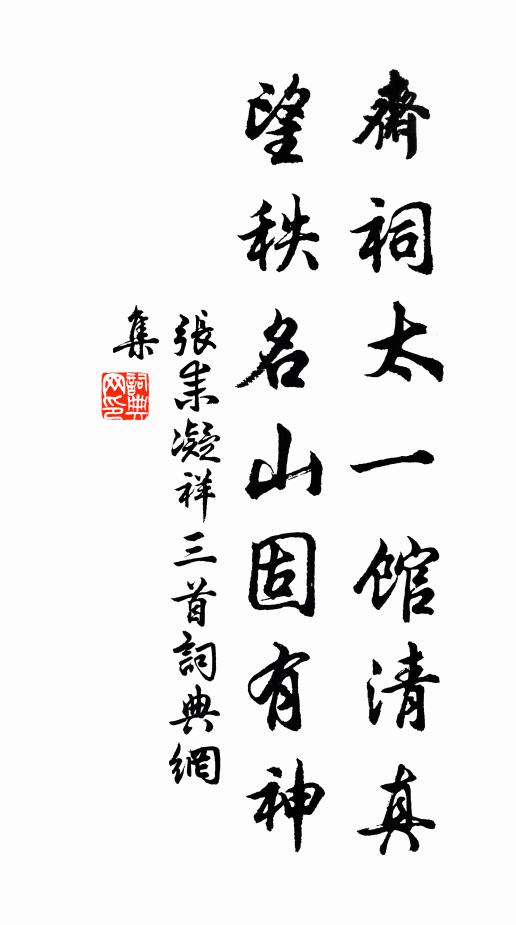 齋祠太一館清真
望秩名山固有神
張耒凝祥三首詞典網
集
詞典
网印